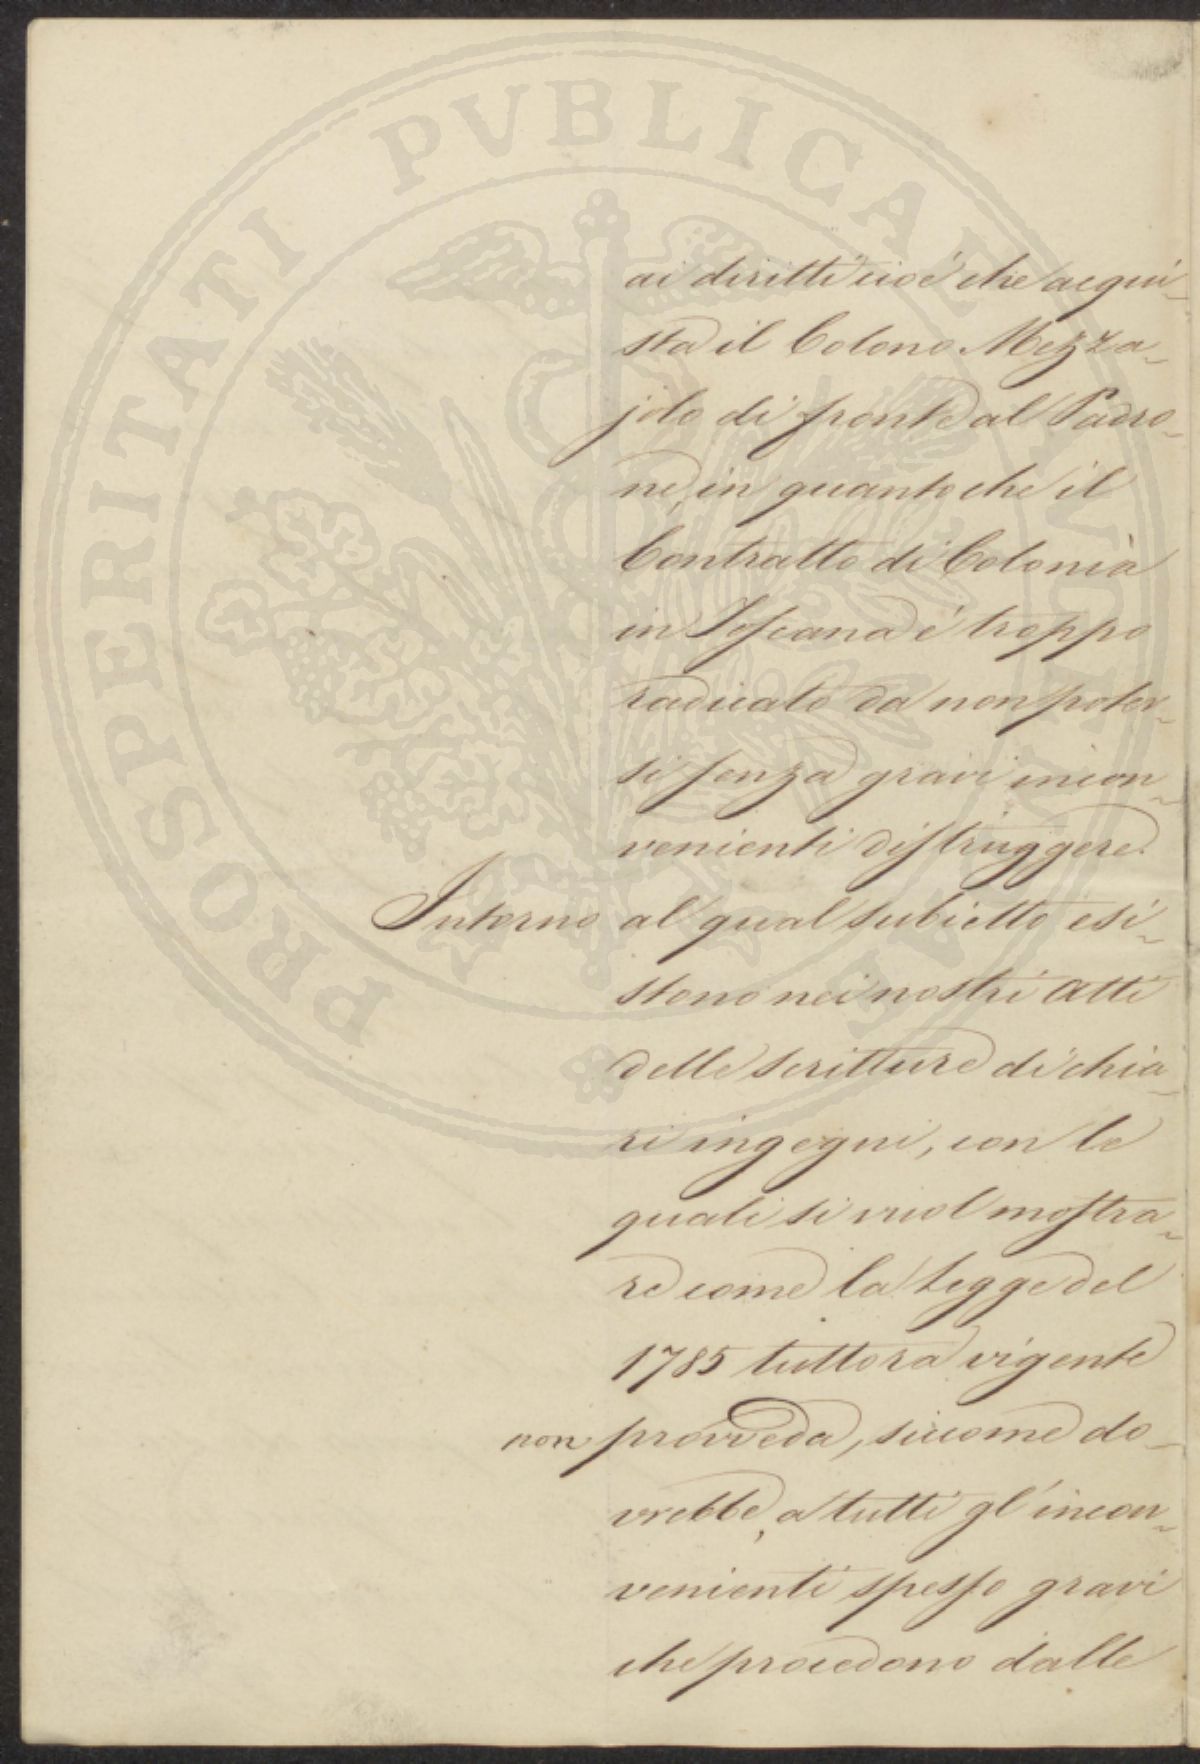 PROSPERITATI PVBLICAE AVGENDAE
ai diritti cioè che acqui-
sta il Colono Mezza-
jolo di fronte al Padro-
ne, in quanto che il
Contratto di Colonìa
in Toscana è troppo
radicato da non poter-
si senza gravi incon-
venienti distruggere.
Intorno al qual subietto esi-
stono nei nostri Atti
delle Scritture di chia-
ri ingegni, con le
quali si vuol mostra-
re come la Legge del
1785 tuttora vigente
non provveda, siccome do-
vrebbe, a tutti gl'incon-
venienti spesso gravi
che procedono dalle